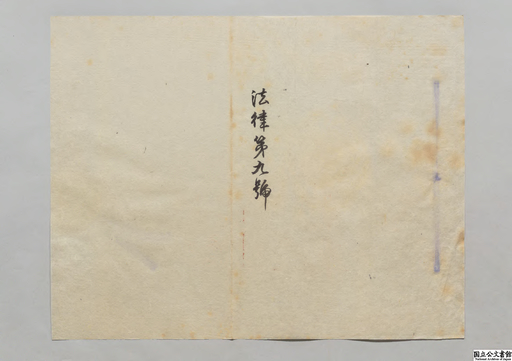 法律第九號
国立公文書館
National Archives of Japan